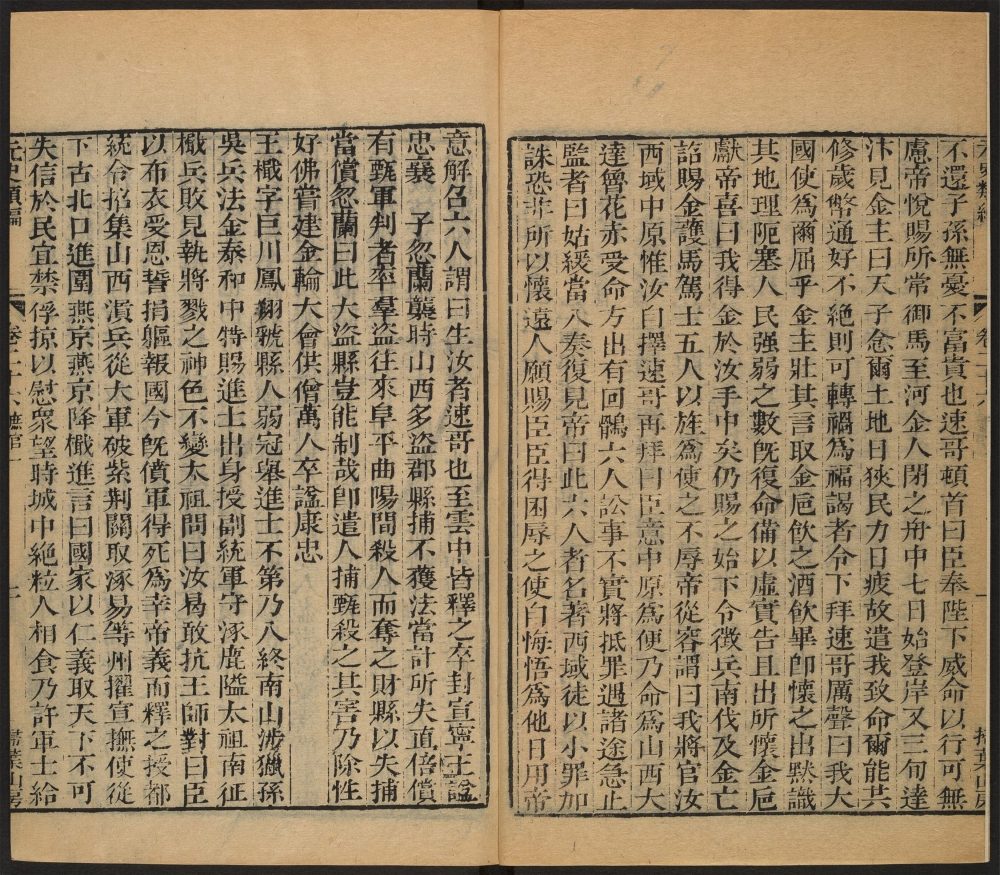 元史類編
卷二十六
掃葉山房
不還子孫無憂不富貴也速哥頓首曰臣奉陛下威命以行可無
慮帝悅賜所常御馬至河金人閉之舟中七日始登岸又三旬達
汴見金主曰天子念爾土地日狹民力日疲故遣我致命爾能共
修歲幣通好不絶則可轉禍爲福謁者令下拜速哥厲聲曰我大
國使爲爾屈乎金主壯其言取金巵飲之酒飲畢卽懷之出默識
其地理阨塞人民强弱之數旣復命備以虛實告且出所懷金巵
獻帝喜曰我得金於汝手中矣仍賜之始下令徵兵南伐及金亡
詔賜金護馬駕士五人以旌爲使之不辱帝從容謂曰我將官汝
西域中原惟汝自擇速哥再拜曰臣意中原爲便乃命爲山西大
達魯花赤受命方出有回鶻六人訟事不實將抵罪遇諸途急止
監者曰姑緩當入奏復見帝曰此六人者名著西域徒以小罪加
誅恐非所以懷遠人願賜臣臣得困辱之使自悔悟爲他日用帝
意解召六人謂曰生汝者速哥也至雲中皆釋之卒封宣寧王諡
忠襄 子忽蘭襲時山西多盜郡縣捕不獲法當計所失直倍償
有甄軍判者率羣盜往來阜平曲陽間殺人而奪之財縣以失捕
當償忽蘭曰此大盜縣豈能制哉卽遣人捕甄殺之其害乃除性
好佛嘗建金輪大會供僧萬人卒諡康忠
王檝字巨川鳳翔虢縣人弱冠舉進士不第乃入終南山涉獵孫
吳兵法金泰和中特賜進士出身授副統軍守涿鹿隘太祖南征
檝兵敗見執將戮之神色不變太祖問曰汝曷敢抗王師對曰臣
以布衣受恩誓捐軀報國今旣僨軍得死爲幸帝義而釋之授都
統令招集山西潰兵從大軍破紫荆關取涿易等州擢宣撫使從
下古北口進圍燕京燕京降檝進言曰國家以仁義取天下不可
失信於民宜禁俘掠以慰衆望時城中絶粒人相食乃許軍士給
元史類編
卷二十六
掃葉山房